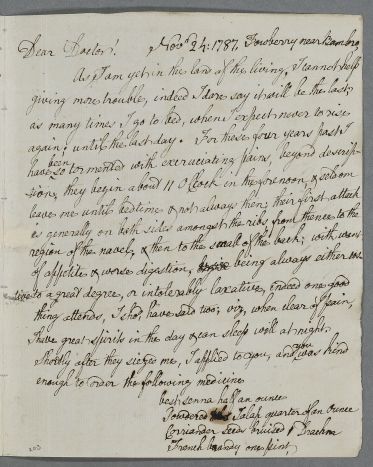 Dear Doctor! Novr 24: 1787. Fowberry near Bambro,
As I am yet in the land of the living, I cannot help
giving more trouble, indeed I dare say it will be the last,
as many times I go to bed, where I expect never to rise
again, until the last day. For these four years past I
have been so tormented with excruciating pains, beyond descrip-
tion, they begin about 11 O'Clock in the forenoon, & seldom
leave me until bedtime & not always then, their first attack
is generally on both sides amongst the ribs from thence to the
region of the navel, & then to the small of the back; with want
of appetite & worse digestion, being always either cos
tive to a great degree, or intolerably laxative, indeed one good
thing attends, I shod. have said two; viz, when clear of pain,
I have great spirits in the day & can sleep well at night.
Shortly after they siezed me, I applied to you, and you was kind
enough to order the following medicine
best senna half an ounce
Powdered Jalap quarter of an Ounce
Corriander seeds bruised 1 Drachm
French brandy one pint,